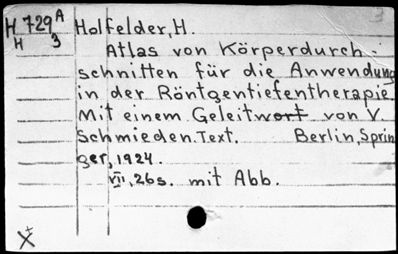 H 729 A Holfelder, H.
H 3 Atlas von Körperdurch-
schnitten für die Anwendung
in der Röntgentiefentherapie.
Mit einem Geleitwort von V.
Schmieden. Text. Berlin, Sprin
ger, 1924.
VII, 26s. mit Abb.